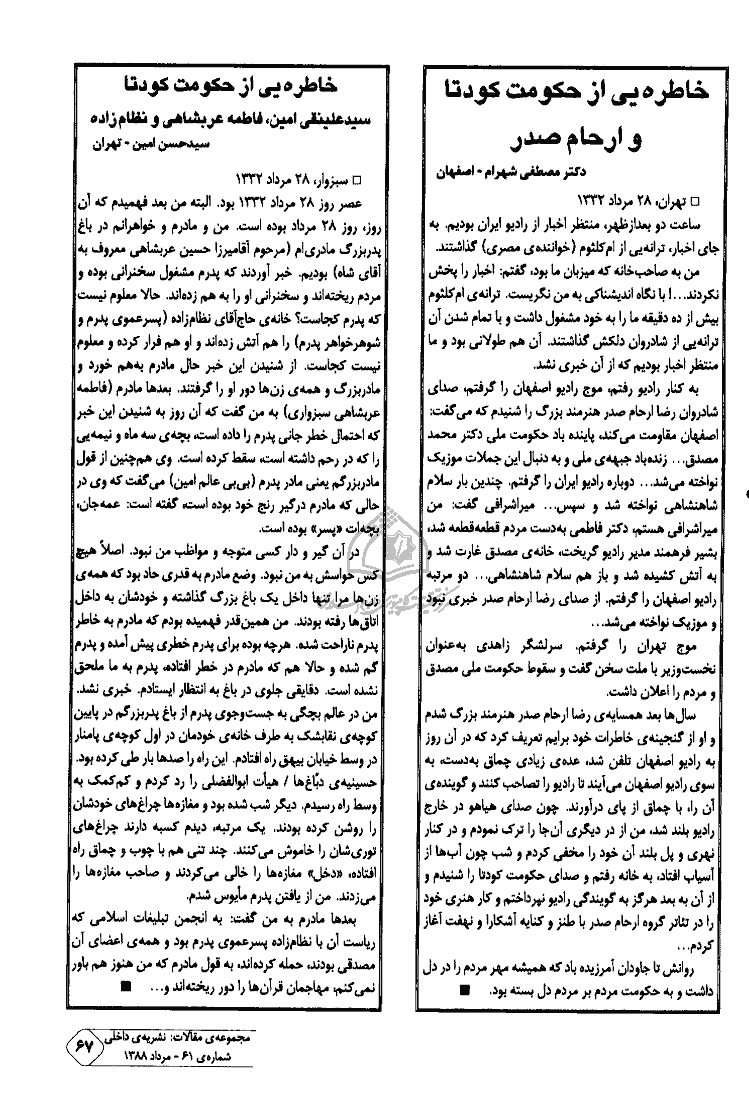 خاطره‌یی از حکومت کودتا
و ارحام صدر
دکتر مصطفی شهرام - اصفهان
□ تهران، ۲۸ مرداد ۱۳۳۲
ساعت دو بعدازظهر، منتظر اخبار از رادیو ایران بودیم. به
جای اخبار، ترانه‌یی از ام‌کلثوم (خواننده‌ی مصری) گذاشتند.
من به صاحب‌خانه که میزبان ما بود، گفتم: اخبار را پخش
نکردند...! با نگاه اندیشناکی به من نگریست. ترانه‌ی ام‌کلثوم
بیش از ده دقیقه ما را به خود مشغول داشت و با تمام شدن آن
ترانه‌یی از شادروان دلکش گذاشتند. آن هم طولانی بود و ما
منتظر اخبار بودیم که از آن خبری نشد.
به کنار رادیو رفتم، موج رادیو اصفهان را گرفتم، صدای
شادروان رضا ارحام صدر هنرمند بزرگ را شنیدم که می‌گفت:
اصفهان مقاومت می‌کند، پاینده باد حکومت ملی دکتر محمد
مصدق... زنده‌باد جبهه‌ی ملی و به دنبال این جملات موزیک
نواخته می‌شد... دوباره رادیو ایران را گرفتم. چندین بار سلام
شاهنشاهی نواخته شد و سپس... میراشرافی گفت: من
میراشرافی هستم، دکتر فاطمی به‌دست مردم قطعه‌قطعه شد،
بشیر فرهمند مدیر رادیو گریخت، خانه‌ی مصدق غارت شد و
به آتش کشیده شد و باز هم سلام شاهنشاهی... دو مرتبه
رادیو اصفهان را گرفتم. از صدای رضا ارحام صدر خبری نبود
و موزیک نواخته می‌شد...
موج تهران را گرفتم. سرلشگر زاهدی به‌عنوان
نخست‌وزیر با ملت سخن گفت و سقوط حکومت ملی مصدق
و مردم را اعلان داشت.
سال‌ها بعد همسایه‌ی رضا ارحام صدر هنرمند بزرگ شدم
و او از گنجینه‌ی خاطرات خود برایم تعریف کرد که در آن روز
به رادیو اصفهان تلفن شد، عده‌ی زیادی چماق به‌دست، به
سوی رادیو اصفهان می‌آیند تا رادیو را تصاحب کنند و گوینده‌ی
آن را، با چماق از پای درآورند. چون صدای هیاهو در خارج
رادیو بلند شد، من از در دیگری آن‌جا را ترک نمودم و در کنار
نهری و پل بلند آن خود را مخفی کردم و شب چون آب‌ها از
آسیاب افتاد، به خانه رفتم و صدای حکومت کودتا را شنیدم و
از آن به بعد هرگز به گویندگی رادیو نپرداختم و کار هنری خود
را در تئاتر گروه ارحام صدر با طنز و کنایه آشکارا و نهفت آغاز
کردم...
روانش تا جاودان آمرزیده باد که همیشه مهر مردم را در دل
داشت و به حکومت مردم بر مردم دل بسته بود. ■
خاطره‌یی از حکومت کودتا
سیدعلینقی امین، فاطمه عربشاهی و نظام‌زاده
سیدحسن امین - تهران
□ سبزوار، ۲۸ مرداد ۱۳۳۲
عصر روز ۲۸ مرداد ۱۳۳۲ بود. البته من بعد فهمیدم که آن
روز، روز ۲۸ مرداد بوده است. من و مادرم و خواهرانم در باغ
پدربزرگ مادری‌ام (مرحوم آقامیرزا حسین عربشاهی معروف به
آقای شاه) بودیم. خبر آوردند که پدرم مشغول سخنرانی بوده و
مردم ریخته‌اند و سخنرانی او را به هم زده‌اند. حالا معلوم نیست
که پدرم کجاست؟ خانه‌ی حاج‌آقای نظام‌زاده (پسرعموی پدرم و
شوهرخواهر پدرم) را هم آتش زده‌اند و او هم فرار کرده و معلوم
نیست کجاست. از شنیدن این خبر حال مادرم به‌هم خورد و
مادربزرگ و همه‌ی زن‌ها دور او را گرفتند. بعدها مادرم (فاطمه
عربشاهی سبزواری) به من گفت که آن روز به شنیدن این خبر
که احتمال خطر جانی پدرم را داده است، بچه‌ی سه ماه و نیمه‌یی
را که در رحم داشته است، سقط کرده است. وی هم‌چنین از قول
مادربزرگم یعنی مادر پدرم (بی‌بی عالم امین) می‌گفت که وی در
حالی که مادرم درگیر رنج خود بوده است، گفته است: عمه‌جان،
بچه‌ات «پسر» بوده است.
در آن گیر و دار کسی متوجه و مواظب من نبود. اصلاً هیچ
کس حواسش به من نبود. وضع مادرم به قدری حاد بود که همه‌ی
زن‌ها مرا تنها داخل یک باغ بزرگ گذاشته و خودشان به داخل
اتاق‌ها رفته بودند. من همین‌قدر فهمیده بودم که مادرم به خاطر
پدرم ناراحت شده. هرچه بوده برای پدرم خطری پیش آمده و پدرم
گم شده و حالا هم که مادرم در خطر افتاده، پدرم به ما ملحق
نشده است. دقایقی جلوی در باغ به انتظار ایستادم. خبری نشد.
من در عالم بچگی به جست‌وجوی پدرم از باغ پدربزرگم در پایین
کوچه‌ی نقابشک به طرف خانه‌ی خودمان در اول کوچه‌ی پامنار
در وسط خیابان بیهق راه افتادم. این راه را صدها بار طی کرده بود.
حسینیه‌ی دبّاغ‌ها / هیأت ابوالفضلی را رد کردم و کم‌کمک به
وسط راه رسیدم. دیگر شب شده بود و مغازه‌ها چراغ‌های خودشان
را روشن کرده بودند. یک مرتبه، دیدم کسبه دارند چراغ‌های
توری‌شان را خاموش می‌کنند. چند تنی هم با چوب و چماق راه
افتاده، «دخل» مغازه‌ها را خالی می‌کردند و صاحب مغازه‌ها را
می‌زدند. من از یافتن پدرم مأیوس شدم.
بعدها مادرم به من گفت: به انجمن تبلیغات اسلامی که
ریاست آن با نظام‌زاده پسرعموی پدرم بود و همه‌ی اعضای آن
مصدقی بودند، حمله کرده‌اند، به قول مادرم که من هنوز هم باور
نمی‌کنم، مهاجمان قرآن‌ها را دور ریخته‌اند و... ■
مجموعه‌ی مقالات: نشریه‌ی داخلی
شماره‌ی ۶۱ - مرداد ۱۳۸۸
۶۷